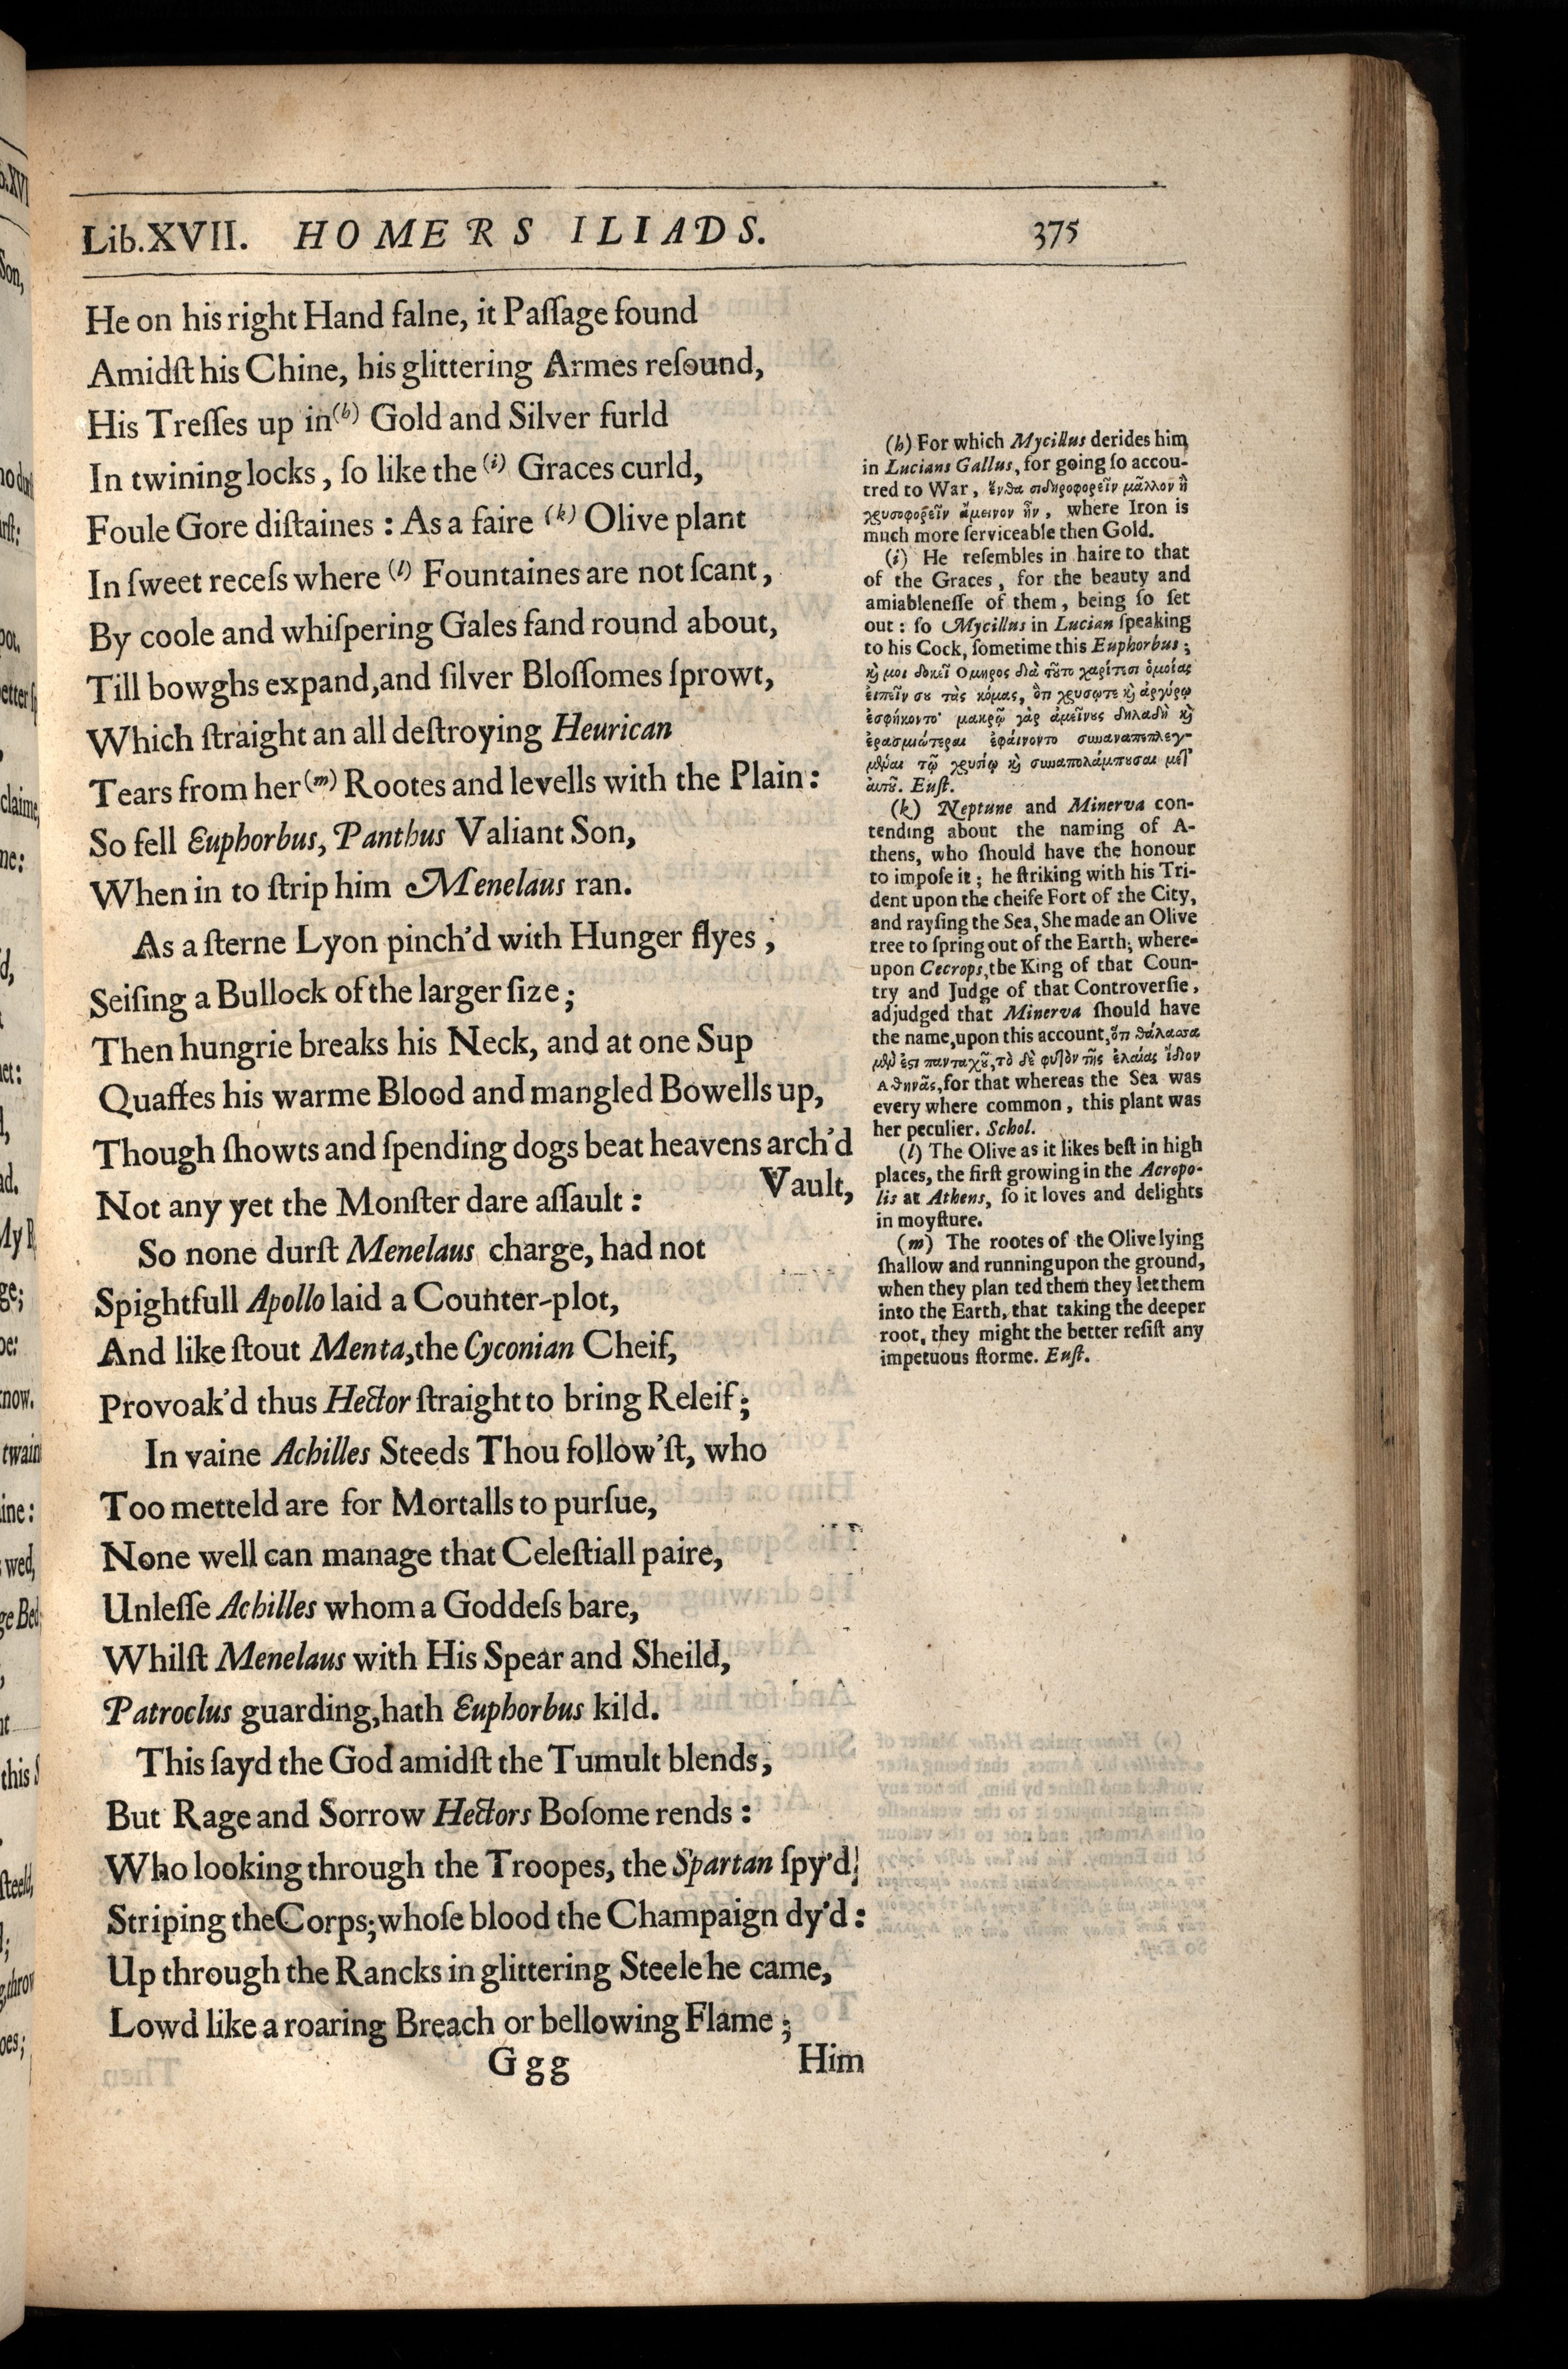 Lib.XVII. HOMERS ILIADS. 375
He on his right Hand falne, it Paſſage found
Amidſt his Chine, his glittering Armes reſound,
His Treſſes up in (h) Gold and Silver furld
In twining locks, ſo like the (i) Graces curld,
Foule Gore diſtaines : As a faire (k) Olive plant
In ſweet receſs where (l) Fountaines are not ſcant,
By coole and whiſpering Gales fand round about,
Till bowghs expand, and ſilver Bloſſomes ſprowt,
Which ſtraight an all deſtroying Heurican
Tears from her (m) Rootes and levells with the Plain :
So fell Euphorbus, Panthus Valiant Son,
When in to ſtrip him Menelaus ran.
As a ſterne Lyon pinch'd with Hunger flyes ,
Seiſing a Bullock of the larger ſize ;
Then hungrie breaks his Neck, and at one Sup
Quaffes his warme Blood and mangled Bowells up,
Though ſhowts and ſpending dogs beat heavens arch'd
Vault,
Not any yet the Monſter dare aſſault :
So none durſt Menelaus charge, had not
Spightfull Apollo laid a Counter-plot,
And like ſtout Menta, the Cyconian Cheif,
Provoak'd thus Hector ſtraight to bring Releif ;
In vaine Achilles Steeds Thou follow'ſt, who
Too metteld are for Mortalls to purſue,
None well can manage that Celeſtiall paire,
Unleſſe Achilles whom a Goddeſs bare,
Whilſt Menelaus with His Spear and Sheild,
Patroclus guarding, hath Euphorbus kild.
This ſayd the God amidſt the Tumult blends,
But Rage and Sorrow Hectors Boſome rends :
Who looking through the Troopes, the Spartan ſpy'd
Striping the Corps; whoſe blood the Champaign dy'd :
Up through the Rancks in glittering Steele he came,
Lowd like a roaring Breach or bellowing Flame ;
Ggg Him
(h) For which Mycillus derides him
in Lucians Gallus, for going ſo accou-
tred to War, ἔνθα σιδηροφορεῖν μᾶλλον ἢ
χρυσοφορεῖν ἄμεινον ἦν, where Iron is
much more ſerviceable then Gold.
(i) He reſembles in haire to that
of the Graces, for the beauty and
amiableneſſe of them, being ſo ſet
out : ſo Mycillus in Lucian ſpeaking
to his Cock, ſometime this Euphorbus ;
ϗ μοι δοκεῖ Ομηρος διὰ τοῦτο χαρίτεσι ὁμοίας
ἐιπεῖν σου τὰς κόμας, ὅτι χρυσῷτε ϗ ἀργύρῳ
ἐσφήκοντο· μακρῷ γὰρ ἀμείνους δηλαδὴ ϗ
ἐρασμιώτεραι ἐφαίνοντο συναναπεπλεγ-
μέναι τῷ χρυσίῳ ϗ συναπολάμπουσαι μετ'
ἀυτοῦ. Euſt.
(k) Neptune and Minerva con-
tending about the naming of A-
thens, who ſhould have the honour
to impoſe it ; he ſtriking with his Tri-
dent upon the cheife Fort of the City,
and rayſing the Sea, She made an Olive
tree to ſpring out of the Earth; where-
upon Cecrops, the King of that Coun-
try and Judge of that Controverſie,
adjudged that Minerva ſhould have
the name, upon this account, ὅτι θάλασσα
μέν ἐστι πανταχοῦ, τὸ δὲ φυτὸν τῆς ἐλαίας ἴδιον
Αθηνᾶς, for that whereas the Sea was
every where common, this plant was
her peculier. Schol.
(l) The Olive as it likes beſt in high
places, the firſt growing in the Acropo-
lis at Athens, ſo it loves and delights
in moyſture.
(m) The rootes of the Olive lying
ſhallow and running upon the ground,
when they plan ted them they let them
into the Earth, that taking the deeper
root, they might the better reſiſt any
impetuous ſtorme. Euſt.